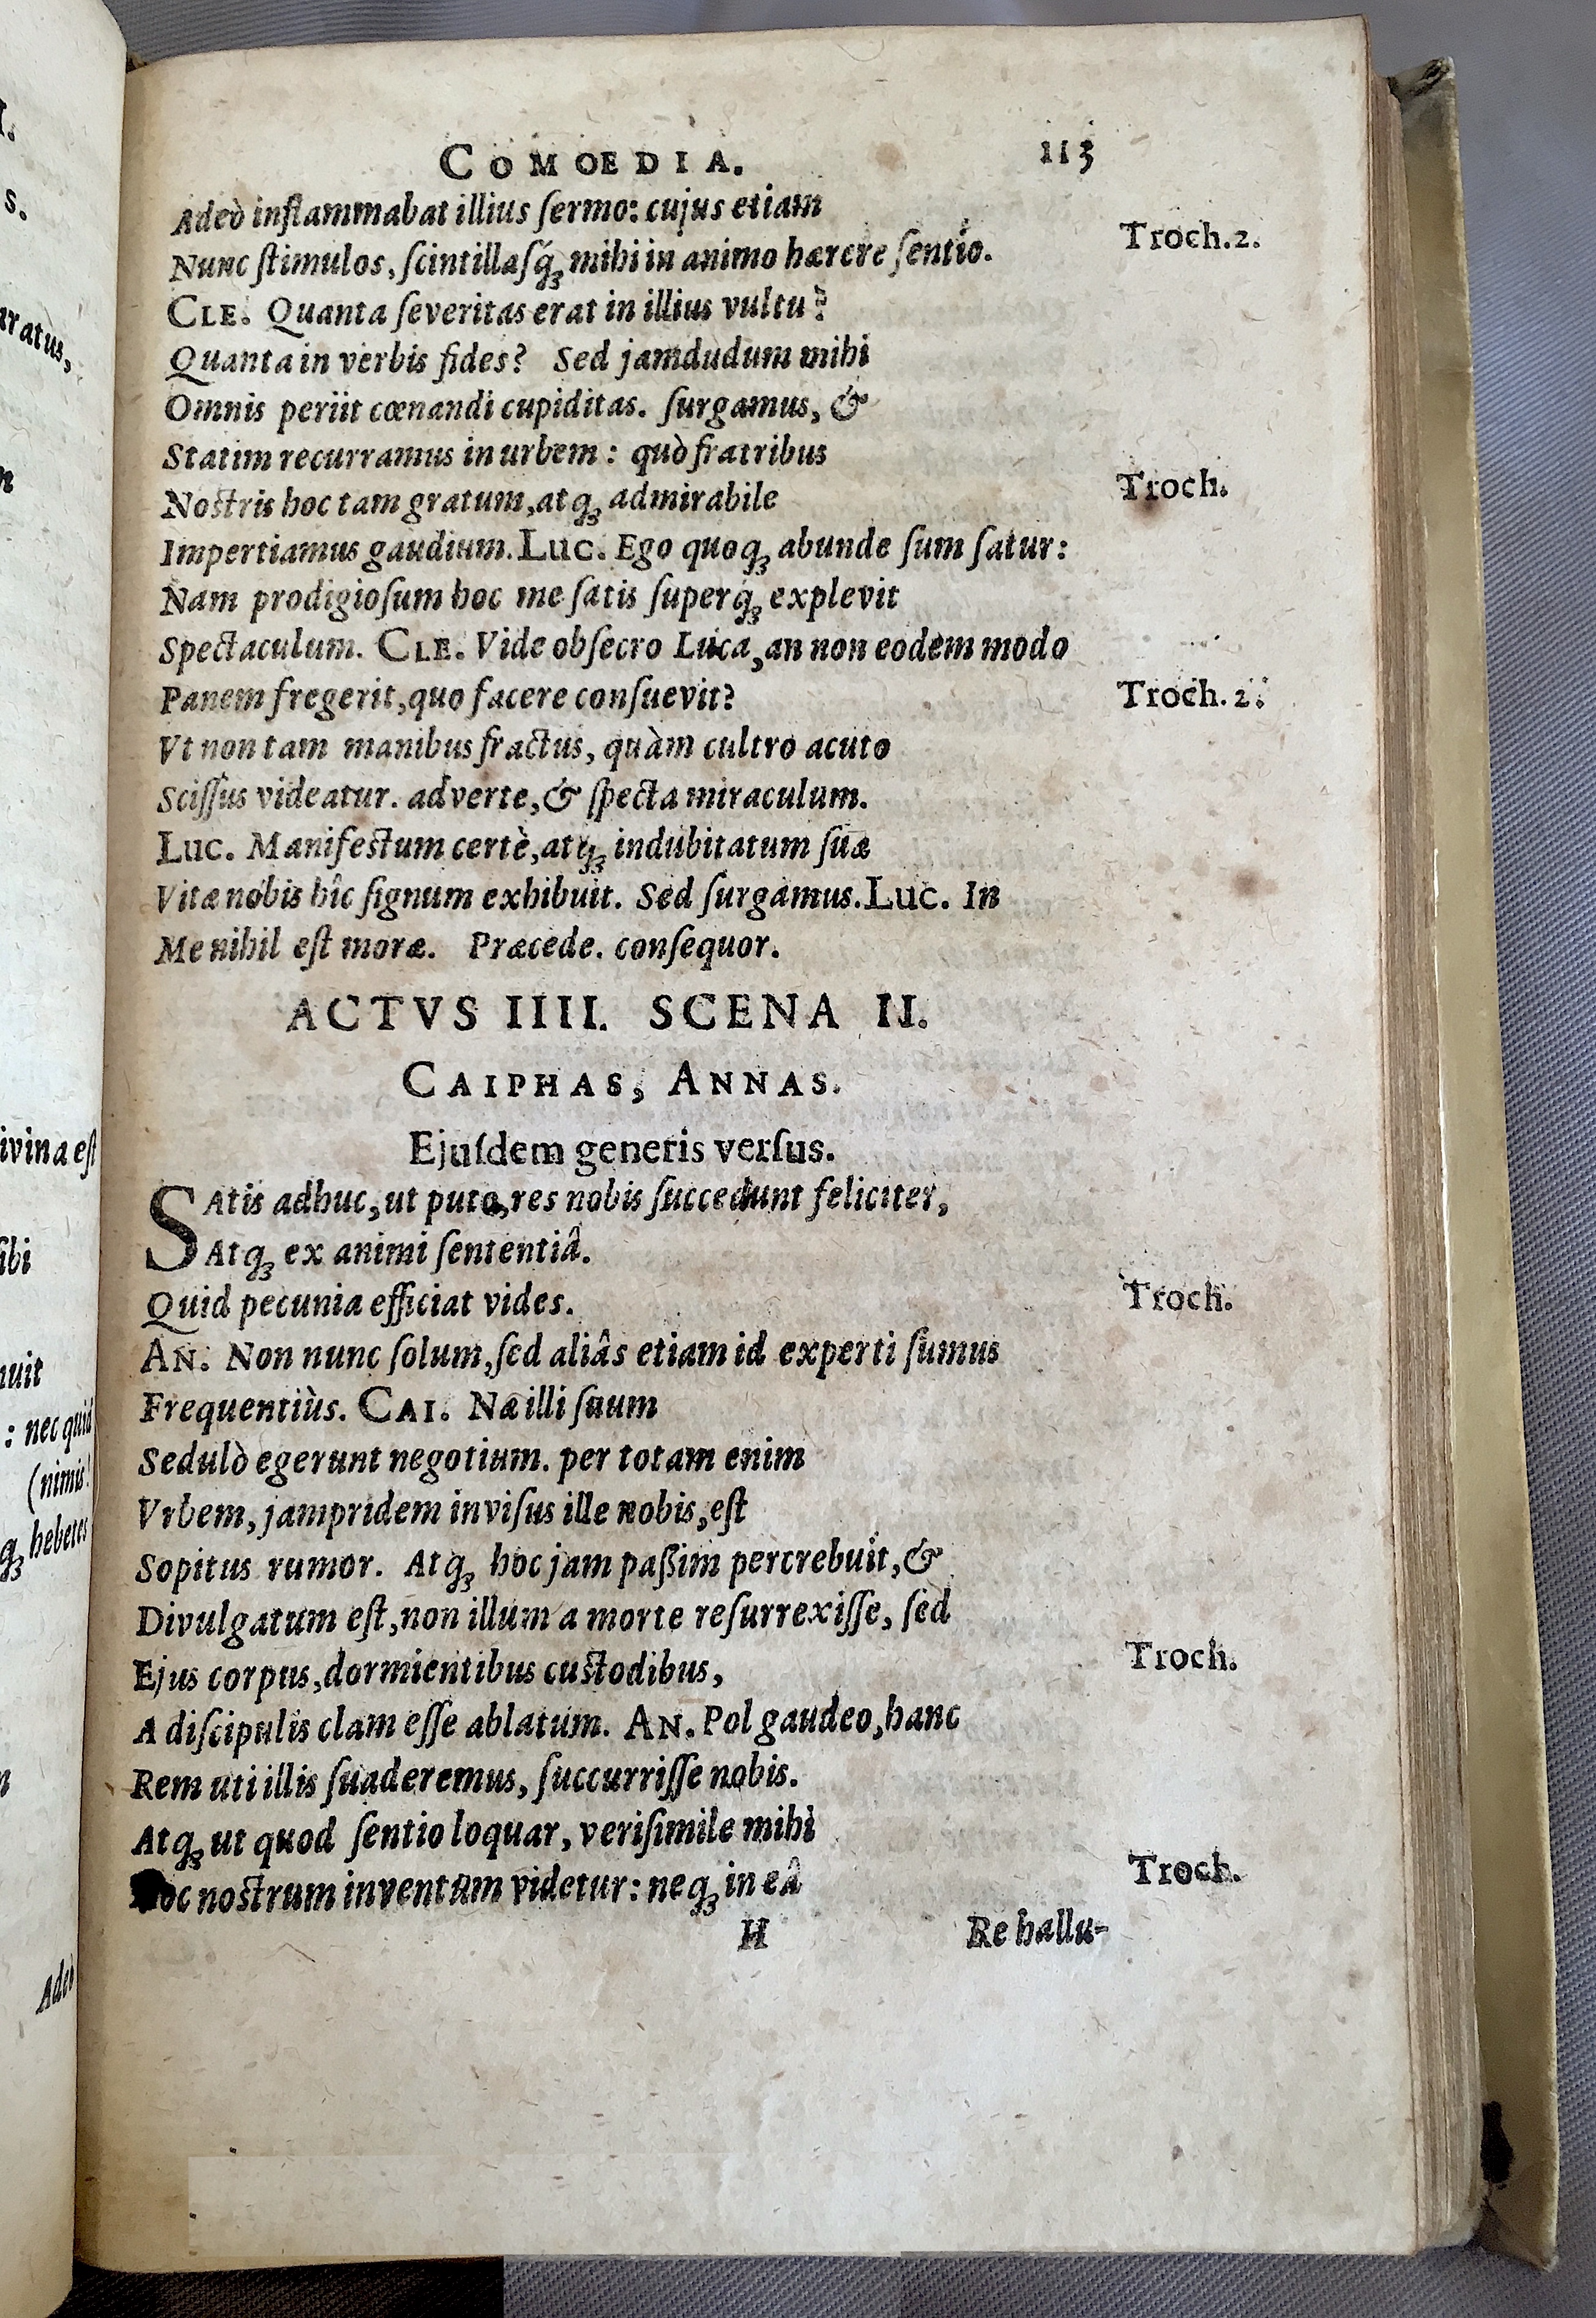 COMOEDIA. 113
Adeò inflammabat illius ſermo: cujus etiam
Nunc ſtimulos, ſcintillaſq́ꝫ mihi in animo hærere ſentio. Troch.2.
CLE. Quanta ſeveritas erat in illius vultu?
Quanta in verbis fides? Sed jamdudum mihi
Omnis periit cœnandi cupiditas. ſurgamus, &
Statim recurramus in urbem: quò fratribus
Noſtris hoc tam gratum, atqꝫ admirabile Troch.
Impertiamus gaudium. Luc. Ego quoqꝫ abunde ſum ſatur:
Nam prodigioſum hoc me ſatis ſuperq́ꝫ explevit
Spectaculum. CLE. Vide obſecro Luca, an non eodem modo
Panem fregerit, quo facere conſuevit? Troch.2.
Vt non tam manibus fractus, quàm cultro acuto
Sciſſus videatur. adverte, & ſpecta miraculum.
Luc. Manifeſtum certè, atqꝫ indubitatum ſuæ
Vitæ nobis hîc ſignum exhibuit. Sed ſurgamus. Luc. In
Me nihil eſt moræ. Præcede. conſequor.
ACTVS IIII. SCENA II.
CAIPHAS, ANNAS.
Ejuſdem generis verſus.
SAtis adhuc, ut puto, res nobis ſuccedunt feliciter,
Atqꝫ ex animi ſententiâ.
Quid pecunia efficiat vides. Troch.
AN. Non nunc ſolum, ſed aliâs etiam id experti ſumus
Frequentiùs. CAI. Næ illi ſuum
Sedulò egerunt negotium. per totam enim
Vrbem, jampridem inviſus ille nobis, eſt
Sopitus rumor. Atqꝫ hoc jam paßim percrebuit, &
Divulgatum eſt, non illum a morte reſurrexiſſe, ſed
Ejus corpus, dormientibus cuſtodibus, Troch.
A diſcipulis clam eſſe ablatum. AN. Pol gaudeo, hanc
Rem uti illis ſuaderemus, ſuccurriſſe nobis.
Atqꝫ ut quod ſentio loquar, veriſimile mihi
Hoc noſtrum inventum videtur: neqꝫ in eâ Troch.
H Re hallu-